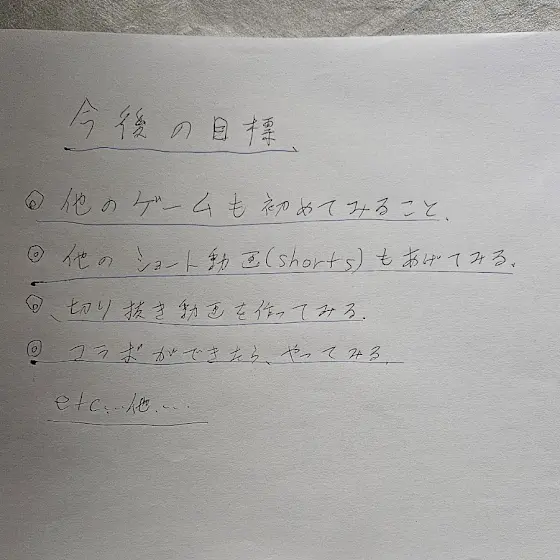 今後の目標、
◎他のゲームも初めてみること、
◎他のショート動画(shorts)もあげてみる、
◎切り抜き動画を作ってみる.
◎コラボができたら、やってみる、
etc...他...